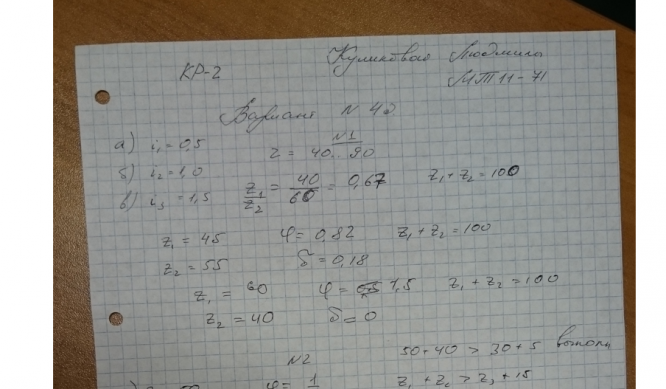 КР-2 Куликовая Людмила
МТ 11-71
Вариант N 42
N1
а) i₁ = 0,5 z = 40..90
б) i₂ = 1,0
в) i₃ = 1,5 z₁/z₂ = 40/60 = 0,67 z₁ + z₂ = 100
z₁ = 45 φ = 0,82 z₁ + z₂ = 100
z₂ = 55 δ = 0,18
z₁ = 60 φ = 1,5 z₁ + z₂ = 100
z₂ = 40 δ = 0
N2 50+40 > 30+5
φ = 1 z₁ + z₂ > z₃ + 15